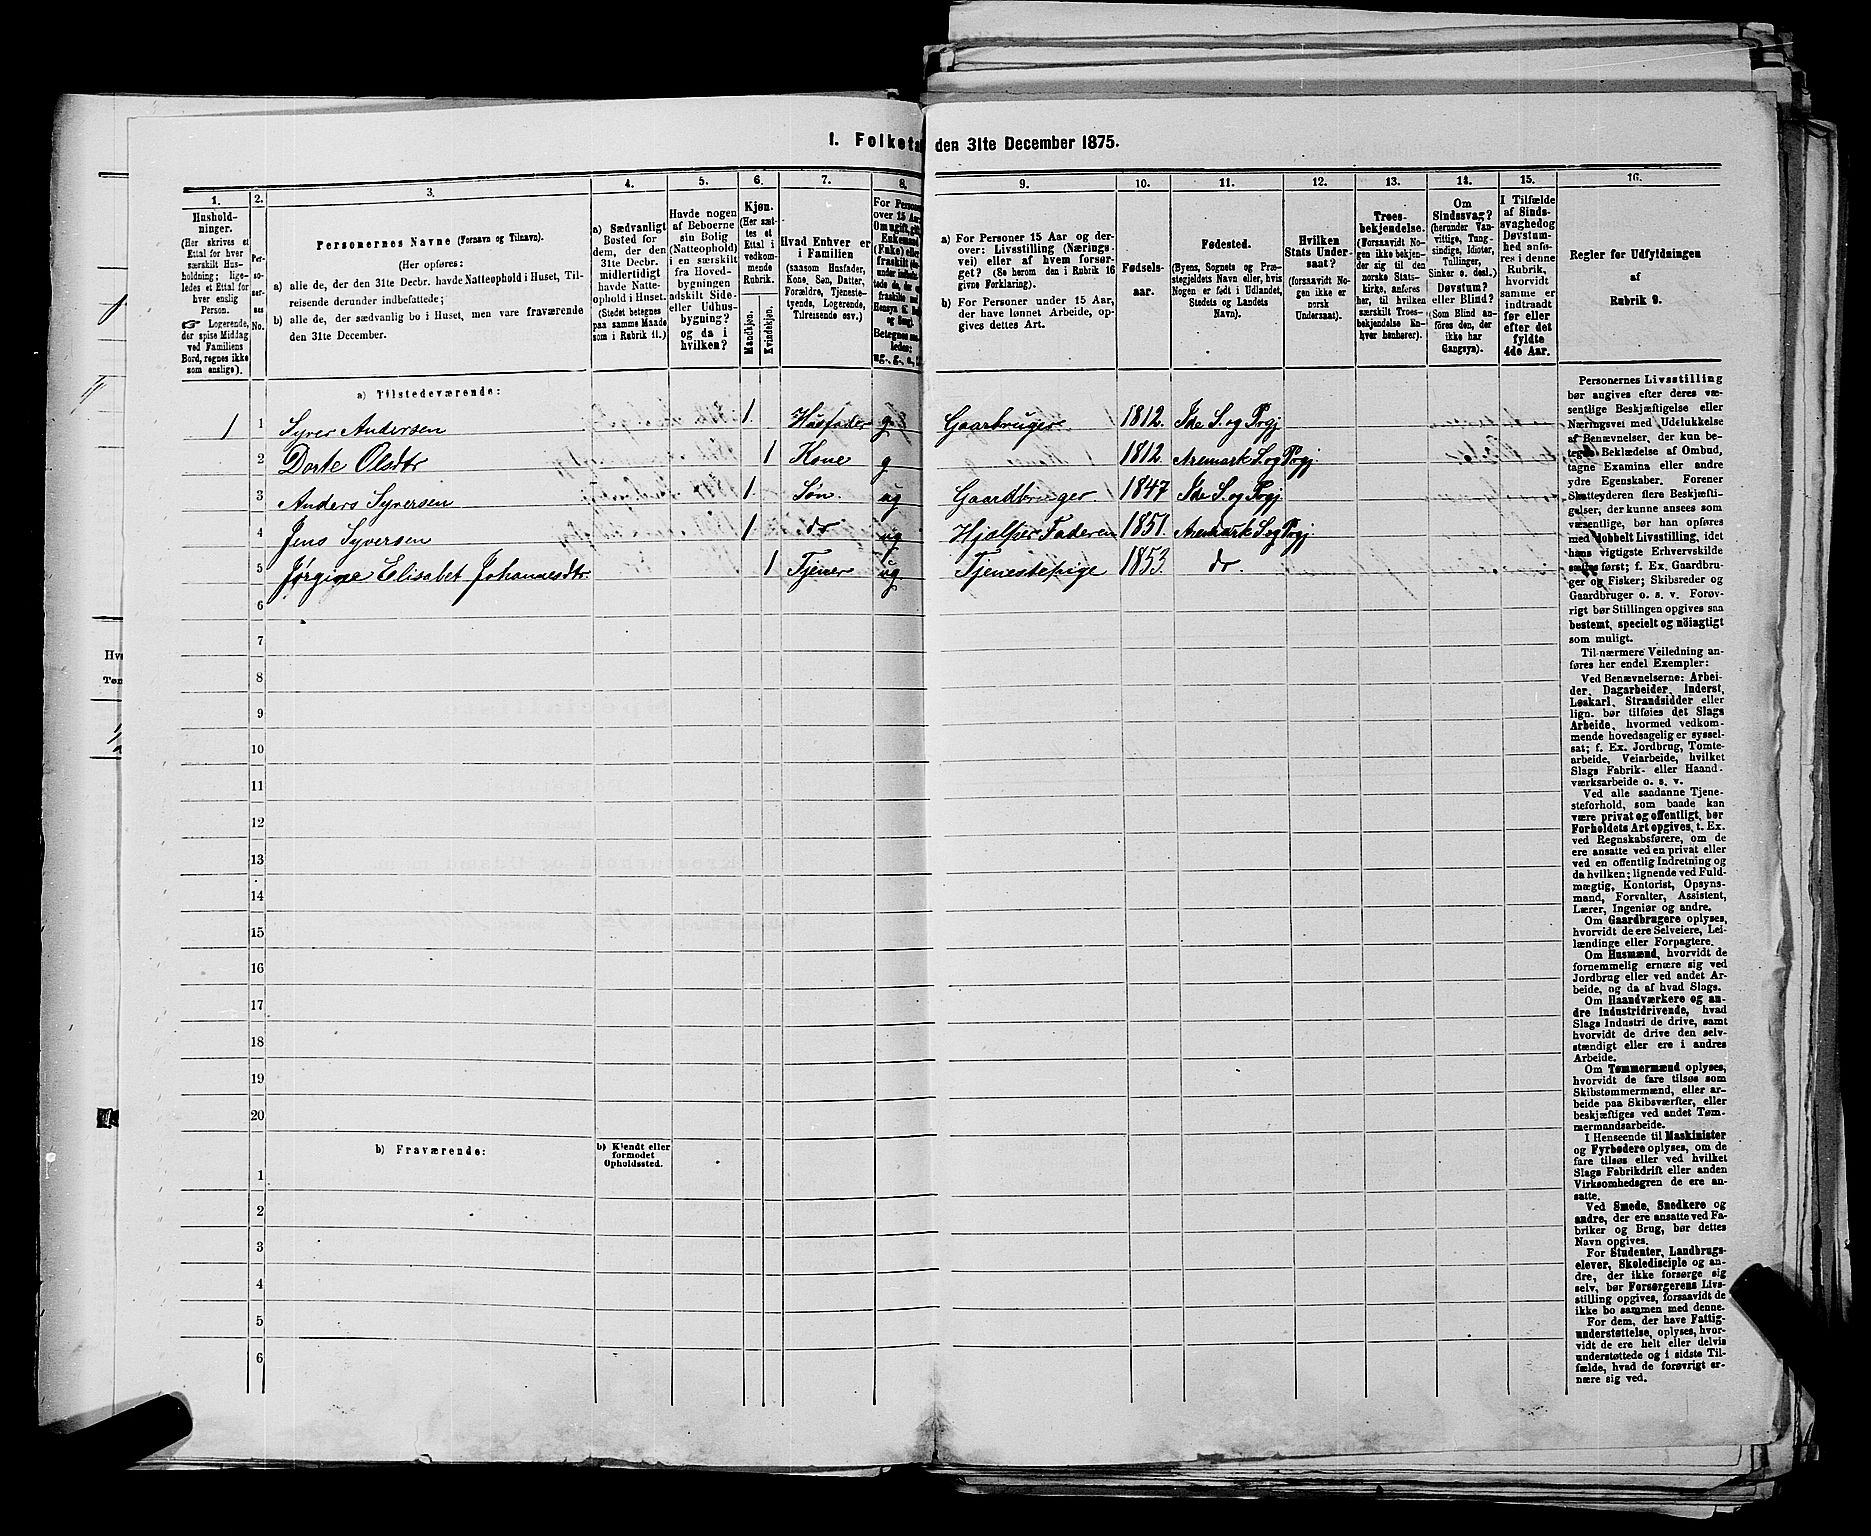 1. Folketa
den 31te December 1875.
1.
Hushold-
ninger.
(Her skrives et
Ettal for hver
særskilt Hus-
holdning; lige-
ledes et Ettal for
hver enslig
Person.
☞ Logerende,
der spise Middag
ved Familiens
Bord, regnes ikke
som enslige).
2.
Per-
so-
ner-
nes
No.
3.
Personernes Navne (Fornavn og Tilnavn).
(Her opføres:
a) alle de, der den 31te Decbr. havde Natteophold i Huset, Til-
reisende derunder indbefattede;
b) alle de, der sædvanlig bo i Huset, men vare fraværende
den 31te December.
4.
a) Sædvanligt
Bosted for
dem, der den
31te Decbr.
midlertidigt
havde Natte-
ophold i Huset.
(Stedet betegnes
paa samme Maade
som i Rubrik 11.)
5.
Havde nogen
af Beboerne
sin Bolig
(Natteophold)
i en særskilt
fra Hoved-
bygningen
adskilt Side-
eller Udhus-
bygning?
og da i
hvilken?
6.
Kjøn.
(Her sæt-
tes et
Ettal i
vedkom-
mende
Rubrik.
Mandkjøn.
Kvindekjøn.
7.
Hvad Enhver er
i Familien
(saasom Husfader,
Kone, Søn, Datter,
Forældre, Tjeneste-
tyende, Logerende,
Tilreisende osv.)
8.
For Persone
over 15 Aar
Om ugift, gift
Enkemand
(Enke) eller
fraskilt
Betegnes
ledes:
ug., g., e.,
9.
a) For Personer 15 Aar og der-
over: Livsstilling (Nærings-
vei) eller af hvem forsør-
get? (Se herom den i Rubrik 16
givne Forklaring).
b) For Personer under 15 Aar,
der have lønnet Arbeide, op-
gives dettes Art.
10.
Fødsels-
aar.
11.
Fødested.
(Byens, Sognets og Præ-
stegjeldets Navn eller, hvis
Nogen er født i Udlandet,
Stedets og Landets
Navn).
12.
Hvilken
Stats Under-
saat?
(forsaavidt No-
gen ikke er
norsk
Undersaat).
13.
Troes-
bekjendelse.
(Forsaavidt No-
gen ikke bekjen-
der sig til den
norske Stats-
kirke, anføres
her, til hvilken
særskilt Troes-
bekjendelse En-
hver henhører).
14.
Om
Sindssvag?
(herunder Van-
vittige, Tung-
sindige, Idioter,
Tullinger,
Sinker o. desl.)
Døvstum?
eller Blind?
(Som Blind an-
føres den, der
ikke har
Gangsyn).
15.
I Tilfælde
af Sinds-
svaghedog
Døvstum-
hed anfø-
res i denne
Rubrik,
hvorvidt
samme er
indtraadt
før eller
efter det
fyldte
4de Aar.
16.
Regler for Udfyldningen
af
Rubrik 9.
a) Tilstedeværende:
1 1 Syver Andersen 1 Husfader g Gaarbruger 1812 Ide S. og Prgj
2 Dorte Olsdtr 1 Kone g 1812 Aremark S. og Prgj
3 Anders Syversen 1 Søn ug Gaardbruger 1847 Ide S. og Prgj
4 Jens Syversen 1 do ug Hjælper Faderen 1851 Aremark S. og Prgj
5 Jørgine Elisabet Johannesdtr 1 Tjener ug Tjenestepige 1853 do
6
7
8
9
10
11
12
13
14
15
16
17
18
19
20
b) Fraværende:
b) Kjendt eller
formodet
Opholdssted.
1
2
3
4
5
6
Personernes Livsstilling
bør angives efter deres væ-
sentlige Beskjæftigelse eller
Næringsvei med Udelukkelse
af Benævnelser, der kun be-
tegne Beklædelse af Ombud,
tagne Examina eller andre
ydre Egenskaber. Forener
Skatteyderen flere Beskjæfti-
gelser, der kunne ansees som
væsentlige, bør han opføres
med dobbelt Livsstilling, idet
hans vigtigste Erhvervskilde
sættes først; f. Ex. Gaardbru-
ger og Fisker; Skibsreder og
Gaardbruger o. s. v. Forøv-
rigt bør Stillingen opgives saa
bestemt, specielt og nöiagtigt
som muligt.
Til nærmere Veiledning an-
føres her endel Exempler:
Ved Benævnelserne: Arbei-
der, Dagarbeider, Inderst,
Løskarl, Strandsidder eller
lign. bør tilføies det Slags
Arbeide, hvormed vedkom-
mende hovedsagelig er syssel-
sat; f. Ex. Jordbrug, Tomte-
arbeide, Veiarbeide, hvilket
Slags Fabrik- eller Haand-
værksarbeide o. s. v.
Ved alle saadanne Tjene-
steforhold, som baade kan
være privat og offentligt, bør
Forholdets Art opgives, t. Ex.
ved Regnskabsførere, om de
ere ansatte ved en privat eller
ved en offentlig Indretning og
da hvilken; lignende ved Fuld-
mægtig, Kontorist, Opsyns-
mand, Forvalter, Assistent,
Lærer, Ingeniør og andre.
Om Gaardbrugere oplyses,
hvorvidt de ere Selveiere, Lei-
lændinge eller Forpagtere.
Om Husmænd, hvorvidt de
fornemmelig ernære sig ved
Jordbrug eller ved andet Ar-
beide, og da af hvad Slags.
Om Haandværkere og an-
dre Industridrivende, hvad
Slags Industri de drive, samt
hvorvidt de drive den selv-
stændigt eller ere i andres
Arbeide.
Om Tømmermænd oplyses,
hvorvidt de fare tilsøs som
Skibstømmermænd, eller ar-
beide paa Skibsværfter, eller
beskjæftiges ved andet Tøm-
mermandsarbeide.
I Henseende til Maskinister
og Fyrbødere oplyses, om de
fare tilsøs eller ved hvilket
Slags Fabrikdrift eller anden
Virksomhedsgren de ere an-
satte.
Ved Smede, Snedkere og
andre, der ere ansatte ved Fa-
briker og Brug, bør dettes
Navn opgives.
For Studenter, Landbrugs-
elever, Skoledisciple og an-
dre, der ikke forsørge sig
selv, bør Forsørgerens Livs-
stilling opgives, forsaavidt de
ikke bo sammen med denne.
For dem, der have Fattig-
understøttelse, oplyses, hvor-
vidt de ere helt eller delvis
understøttede og i sidste Til-
fælde, hvad de forøvrigt er-
nære sig ved.